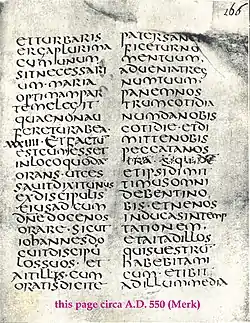 166
ETTURBARIS
ERGAPLURIMA
SITNECESSARI
UM·MARIA
OPTIMAMPAR
TEMELEGIT
QUAENONAU
FERETURABEA·
ETFACTU
ESTCUMESSET
INLOCOQUODA
ORANS·UTCES
SAUITDIXITUNUS
EXDISCIPULIS
EIUSADEUM
DNEDOCENOS
ORARE·SICUT
IOHANNESDO
CUITDISCIPU
LOSSUOS·ET
AITILLIS·CUM
ORATISDICITE
FICETURNO
MENTUUM·
ADUENIATREG
NUMTUUM
PANEMNOS
TRUMCOTIDIA
NUMDANOBIS
COTIDIE·ETDI
MITTENOBIS
PECCATANOS
TRA·SIQUIDE
ETIPSIDIMIT
TIMUSOMNI
DEBENTINO
BIS·ETNENOS
INDUCASINTEMP
TATIONEM·
ETAITADILLOS
QUISUESTRU
HABEBITAMI
CUM·ETIBIT
ADILLUMMEDIA
this page circa A.D. 550 (Merk)